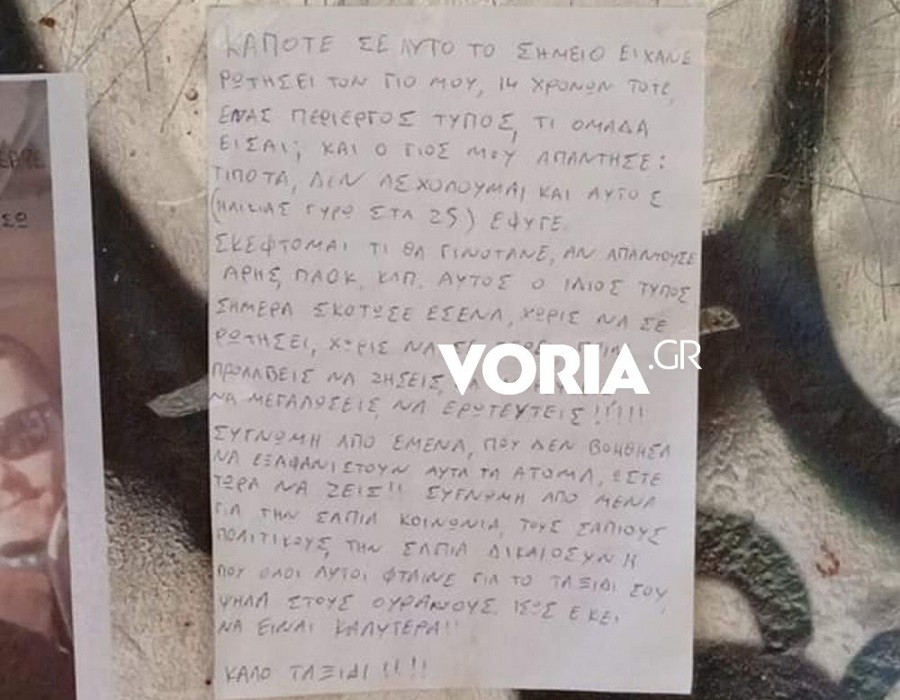 ΚΑΠΟΤΕ ΣΕ ΑΥΤΟ ΤΟ ΣΗΜΕΙΟ ΕΙΧΑΝΕ
ΡΩΤΗΣΕΙ ΤΟΝ ΓΙΟ ΜΟΥ, 14 ΧΡΟΝΩΝ ΤΟΤΕ,
ΕΝΑΣ ΠΕΡΙΕΡΓΟΣ ΤΥΠΟΣ, ΤΙ ΟΜΑΔΑ
ΕΙΣΑΙ; ΚΑΙ Ο ΓΙΟΣ ΜΟΥ ΑΠΑΝΤΗΣΕ:
ΤΙΠΟΤΑ, ΔΕΝ ΑΣΧΟΛΟΥΜΑΙ ΚΑΙ ΑΥΤΟΣ
(ΗΛΙΚΙΑΣ ΓΥΡΩ ΣΤΑ 25) ΕΦΥΓΕ.
ΣΚΕΦΤΟΜΑΙ ΤΙ ΘΑ ΓΙΝΟΤΑΝΕ, ΑΝ ΑΠΑΝΤΟΥΣΕ
ΑΡΗΣ, ΠΑΟΚ, ΚΛΠ. ΑΥΤΟΣ Ο ΙΔΙΟΣ ΤΥΠΟΣ
ΣΗΜΕΡΑ ΣΚΟΤΩΣΕ ΕΣΕΝΑ, ΧΩΡΙΣ ΝΑ ΣΕ
ΡΩΤΗΣΕΙ, ΧΩΡΙΣ ΝΑ ΣΕ
ΠΡΟΛΑΒΕΙΣ ΝΑ ΖΗΣΕΙΣ,
ΝΑ ΜΕΓΑΛΩΣΕΙΣ, ΝΑ ΕΡΩΤΕΥΤΕΙΣ!!!!!
ΣΥΓΝΩΜΗ ΑΠΟ ΕΜΕΝΑ, ΠΟΥ ΔΕΝ ΒΟΗΘΗΣΑ
ΝΑ ΕΞΑΦΑΝΙΣΤΟΥΝ ΑΥΤΑ ΤΑ ΑΤΟΜΑ, ΩΣΤΕ
ΤΩΡΑ ΝΑ ΖΕΙΣ!! ΣΥΓΝΩΜΗ ΑΠΟ ΜΕΝΑ
ΓΙΑ ΤΗΝ ΣΑΠΙΑ ΚΟΙΝΩΝΙΑ, ΤΟΥΣ ΣΑΠΙΟΥΣ
ΠΟΛΙΤΙΚΟΥΣ, ΤΗΝ ΣΑΠΙΑ ΔΙΚΑΙΟΣΥΝΗ
ΠΟΥ ΟΛΟΙ ΑΥΤΟΙ ΦΤΑΙΝΕ ΓΙΑ ΤΟ ΤΑΞΙΔΙ ΣΟΥ
ΨΗΛΑ ΣΤΟΥΣ ΟΥΡΑΝΟΥΣ. ΙΣΩΣ ΕΚΕΙ
ΝΑ ΕΙΝΑΙ ΚΑΛΥΤΕΡΑ!!
ΚΑΛΟ ΤΑΞΙΔΙ!!!!
VORIA.GR
ΣΩ